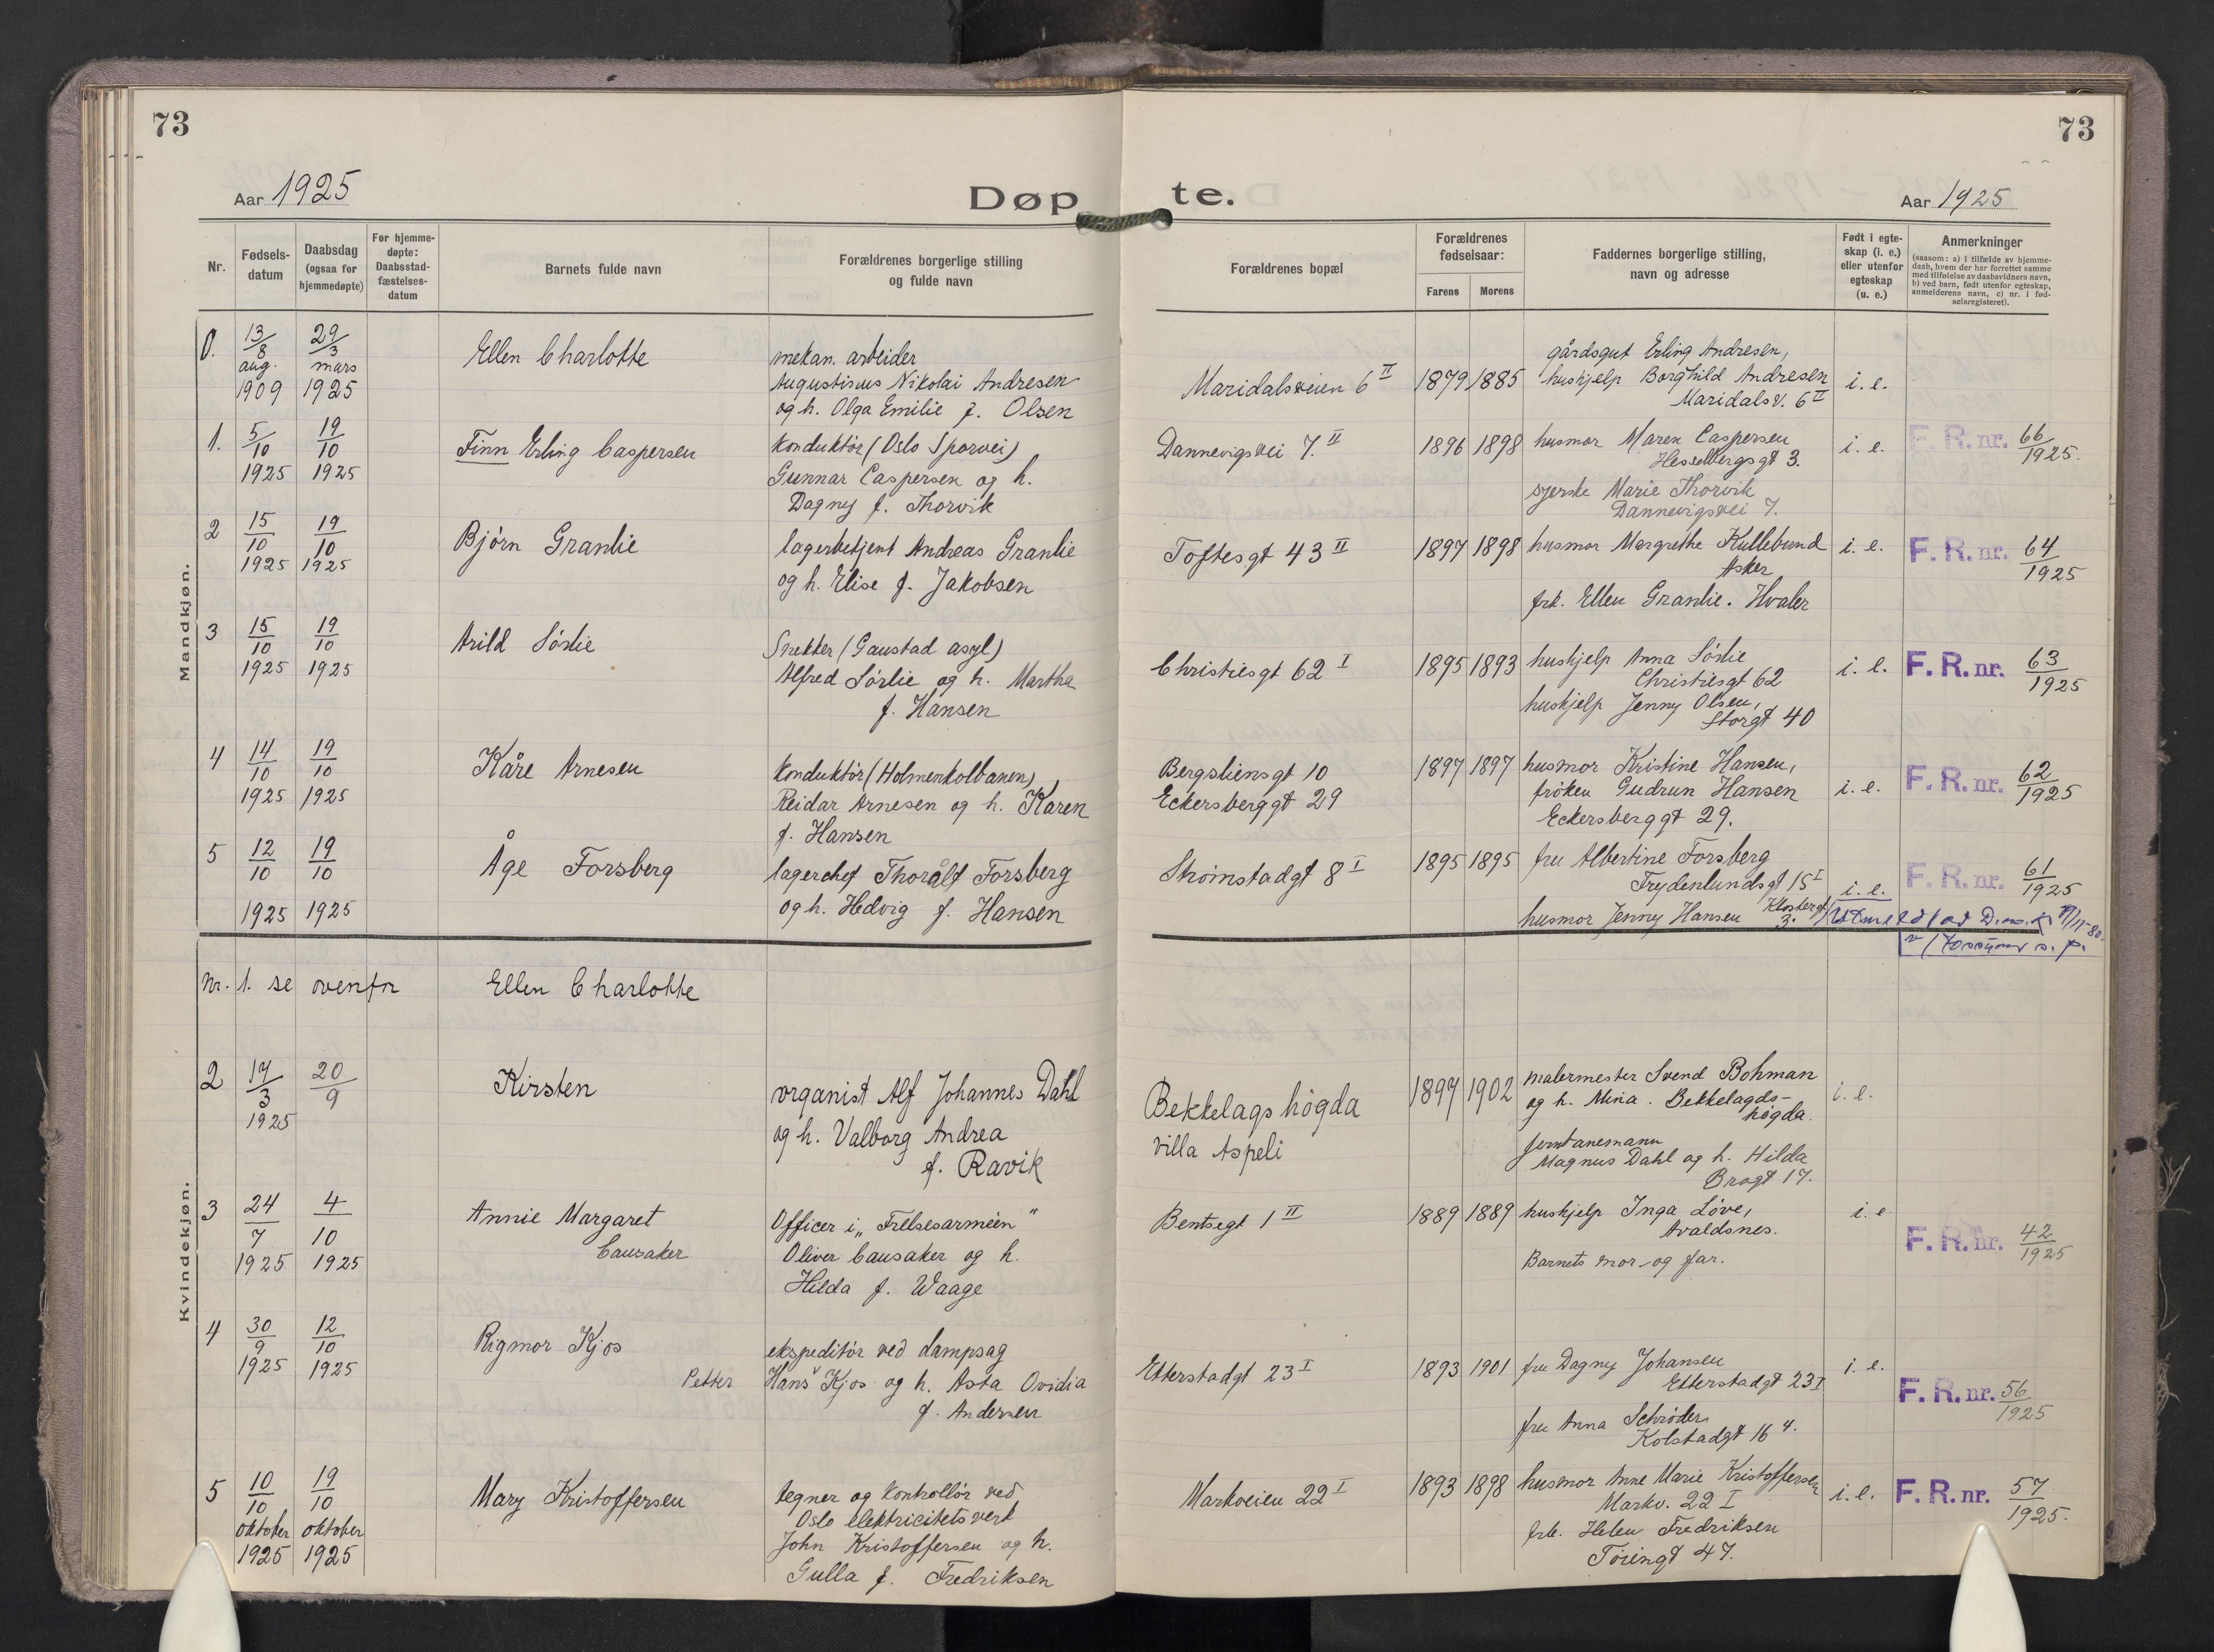 73
73
Aar 1925
Døpte.
Aar 1925
Nr.
Fødsels-
datum
Daabsdag
(ogsaa for
hjemmedøpte)
For hjemme-
døpte:
Daabsstad-
fæstelses-
datum
Barnets fulde navn
Forældrenes borgerlige stilling
og fulde navn
Forældrenes bopæl
Forældrenes
fødselsaar:
Farens
Morens
Faddernes borgerlige stilling,
navn og adresse
Født i egte-
skap (i. e.)
eller utenfor
egteskap
(u. e.)
Anmerkninger
(saasom: a) i tilfælde av hjemme-
daab, hvem der har forrettet samme
med tilføielse av daabsvidners navn,
b) ved barn, født utenfor egteskap,
anmelderens navn, c) nr. i fød-
selsregisteret).
Mandkjøn.
0.
13/8
aug.
1909
29/3
mars
1925
Ellen Charlotte
mekan. arbeider
Augustinus Nikolai Andresen
og h. Olga Emilie f. Olsen
Maridalsveien 6 II
1879
1885
gårdsgut Erling Andresen,
hushjelp Borghild Andresen
Maridalsv. 6 II
i. e.
1.
5/10
1925
19/10
1925
Finn Erling Caspersen
Konduktör (Oslo Sporvei)
Gunnar Caspersen og h.
Dagny f. Thorvik
Dannevigsvei 7. II
1896
1898
husmor Maren Caspersen
Hesselbergsgt 3.
syerske Marie Thorvik
Dannevigsvei 7.
i. e.
F. R. nr. 66/1925.
2
15/10
1925
19/10
1925
Björn Granlie
lagerbetjent Andreas Granlie
og h. Elise f. Jakobsen
Toftesgt 43 II
1897
1898
husmor Margrethe Kullebund
Asker
frk. Ellen Granlie. Hvaler
i. e.
F. R. nr. 64/1925
3
15/10
1925
19/10
1925
Arild Sörlie
Snekker (Gaustad asyl)
Alfred Sörlie og h. Martha
f. Hansen
Christiesgt 62 I
1895
1893
hushjelp Anna Sörlie
Christiesgt 62
hushjelp Jenny Olsen,
Storgt 40
i. e.
F. R. nr. 63/1925
4
14/10
1925
19/10
1925
Kåre Arnesen
Konduktör (Holmenkolbanen)
Reidar Arnesen og h. Karen
f. Hansen
Bergsliensgt 10
Eckersberggt 29
1897
1897
husmor Kristine Hansen,
fröken Gudrun Hansen
Eckersberggt 29.
i. e.
F. R. nr. 62/1925
5
12/10
1925
19/10
1925
Åge Forsberg
lagerchef Thorålf Forsberg
og h. Hedvig f. Hansen
Strömstadgt 8 I
1895
1895
fru Albertine Forsberg
Frydenlundsgt 15 I
husmor Jenny Hansen
3.
i. e.
F. R. nr. 61/1925
Kvindekjøn.
Nr. 1. se ovenfor
Ellen Charlotte
2
17/3
1925
20/9
Kirsten
organist Alf Johannes Dahl
og h. Valborg Andrea
f. Ravik
Bekkelagshögda
villa Aspeli
1897
1902
malermester Svend Bohman
og h. Mina. Bekkelagds-
högda.
Magnus Dahl og h. Hilda
Brogt 17.
i. e.
3
24/7
1925
4/10
1925
Annie Margaret
Causaker
Officer i „Frelsesarméen"
Oliver Causaker og h.
Hilda f. Waage
Bentsegt 1 II
1889
1889
hushjelp Inga Löve,
Avaldsnes.
Barnets mor og far.
i. e
F. R. nr. 42/1925
4
30/9
1925
12/10
1925
Rigmor Kjos
ekspeditör ved dampsag
Petter
Hans Kjos og h. Asta Ovidia
f. Andersen
Etterstadgt 23 I
1893
1901
fru Dagny Johansen
Etterstadgt 23 I
fru Anna Schröder
Kolstadgt 16 4.
i. e.
F. R. nr. 56/1925
5
10/10
oktober
1925
19/10
oktober
1925
Mary Kristoffersen
tegner og kontrollör ved
Oslo elektricitetsverk
John Kristoffersen og h.
Gulla f. Fredriksen
Markveien 22 I
1893
1898
husmor Anne Marie Kristoffersen
Markv. 22 I
frk. Helen Fredriksen
Töiengt 47.
i. e.
F. R. nr. 57/1925.